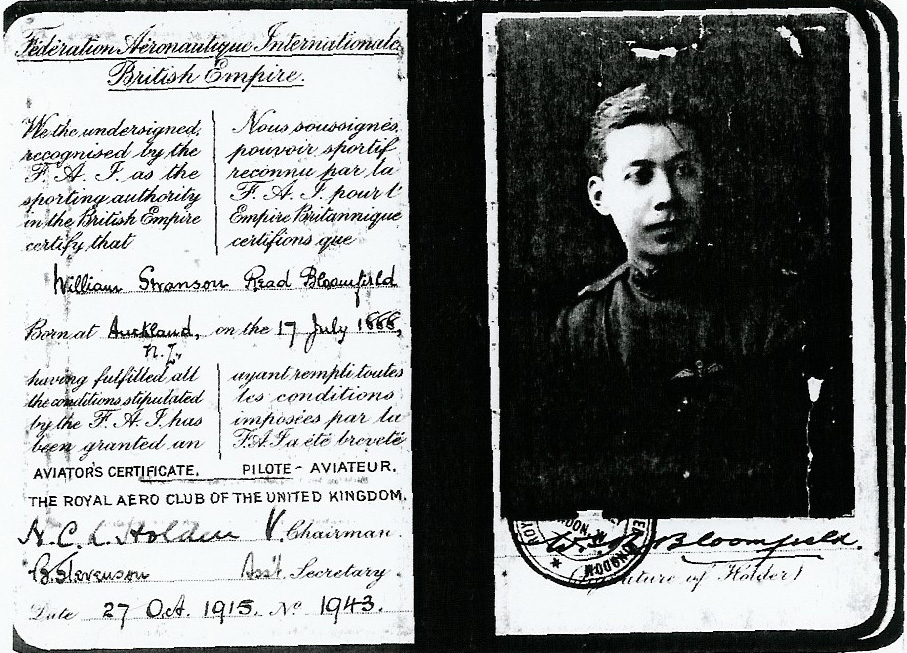 Fédération Aéronautique Internationale
British Empire.
We the undersigned,
recognised by the
F. A. I as the
sporting authority
in the British Empire
certify that
Nous soussignés,
pouvoir sportif
reconnu par la
F. A. I. pour l'
Empire Britannique
certifions que
William Swanson Read Bloomfield
Born at Auckland, on the 17 July 1888,
N.Z.
having fulfilled all
the conditions stipulated
by the F. A. I. has
been granted an
ayant rempli toutes
les conditions
imposées par la
F.A.I a été breveté
AVIATOR'S CERTIFICATE. PILOTE-AVIATEUR.
THE ROYAL AERO CLUB OF THE UNITED KINGDOM.
H. C. L. Holden V. Chairman.
B. Stevenson Asst. Secretary.
Date 27 Oct. 1915. No 1943.
Bloomfield.
(Signature of Holder)